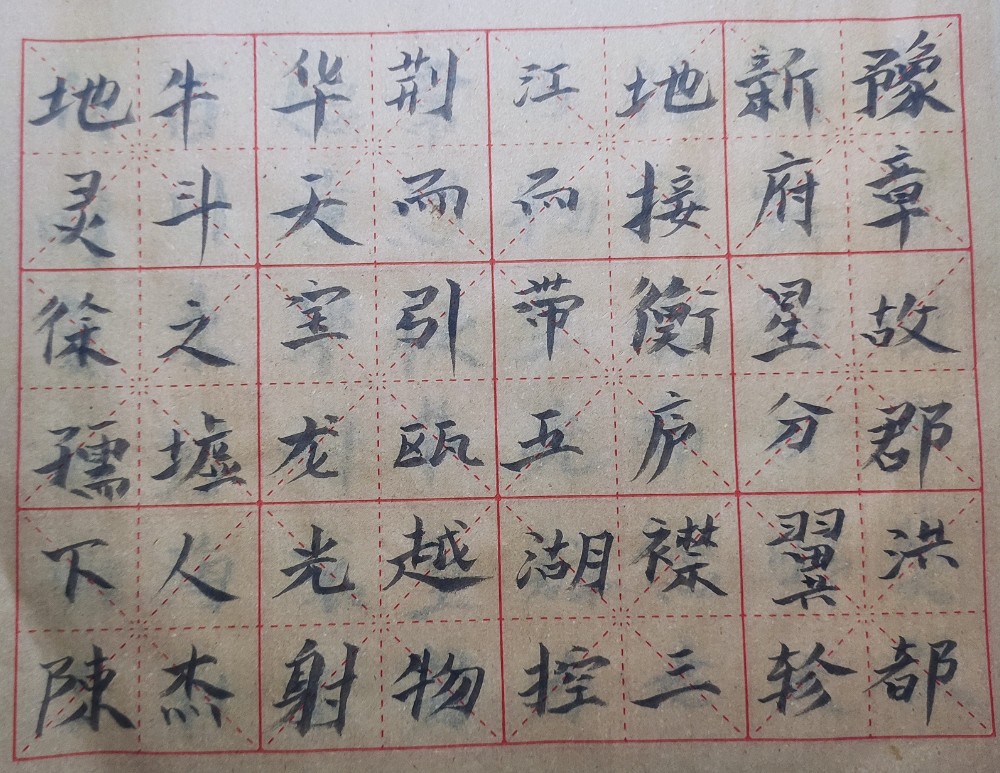 豫章故郡洪都
新府星分翼轸
地接衡庐襟三
江而带五湖控
荆而引瓯越物
华天宝龙光射
牛斗之墟人杰
地灵徐孺下陳